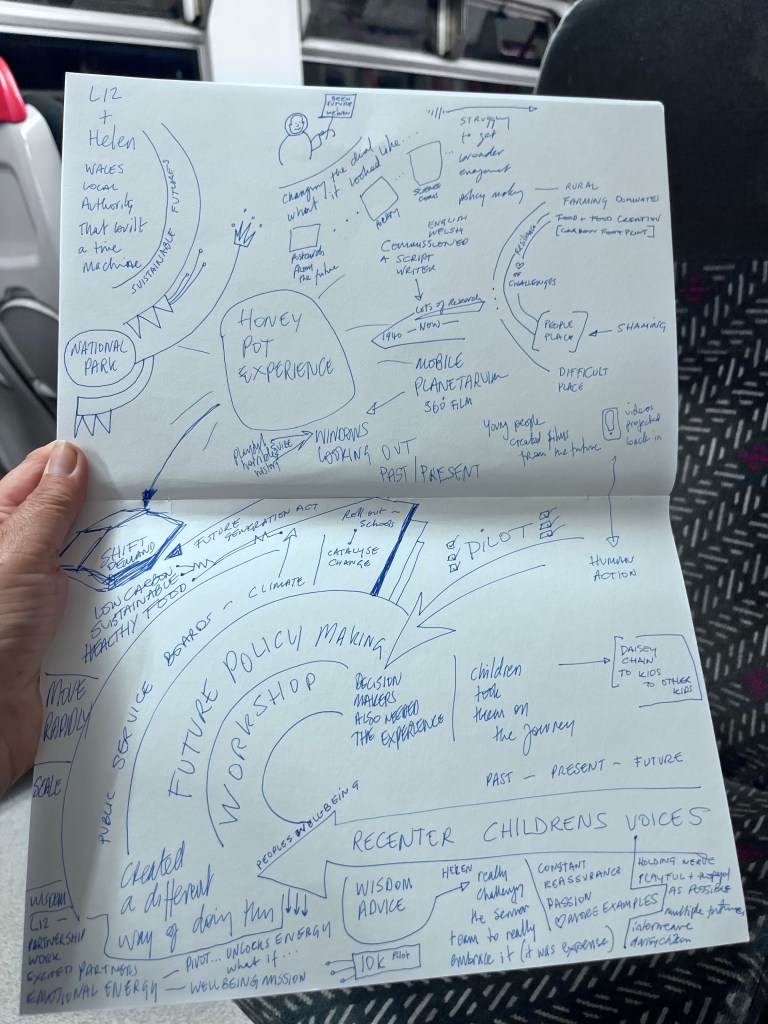 LIZ
+
Helen
WALES
LOCAL
Authority
That built
a time
Machine
SUSTAINABLE FUTURES
NATIONAL
PARK
BEEN
FUTURE
Changing the dial
what it looked like...
POSTCARDS
FROM
the future
POETRY
SCIENCE
struggling
to get
broader
engagement
policy making — RURAL
FARMING DOMINATES
FOOD + FOOD CREATION
[CARBON FOOTPRINT]
RESILIENCE
CHALLENGES
PEOPLE
PLACE
SHAMING
DIFFICULT
PLACE
ENGLISH
WELSH
COMMISSIONED
A SCRIPT
WRITER
LOTS of Research
1940 — NOW —
HONEY
POT
EXPERIENCE
MOBILE
PLANETARIUM
360 FILM
playful
horrible
history
WINDOWS
LOOKING OUT
PAST/PRESENT
Young people
created films
from the future
videos
projected
back in
HUMAN
ACTION
SHIFT
DEMAND
FUTURE
GENERATION ACT
Roll out ~
Schools
CATALYSE
CHANGE
PILOT
LOW CARBON
SUSTAINABLE
HEALTHY FOOD
MOVE
RAPIDLY
SCALE
PUBLIC SERVICE BOARDS ~ CLIMATE
FUTURE POLICY MAKING
WORKSHOP
DECISION
MAKERS
ALSO NEEDED
THE EXPERIENCE
children
took
them on
the journey
DAISEY
CHAIN
TO KIDS
TO OTHER
KIDS
PAST — PRESENT — FUTURE
PEOPLES WELL-BEING
RECENTER CHILDRENS VOICES
Created
a different
way of doing this
WISDOM
LIZ —
PARTNERSHIP
WORK
EXCITED PARTNERS
EMOTIONAL ENERGY — WELLBEING MISSION
PIVOT... UNLOCKS ENERGY
what if...
10K Pilot
WISDOM
ADVICE
HELEN
really
challenging
the senior
team to really
embrace it (it was expensive)
CONSTANT
REASSURANCE
PASSION
MORE EXAMPLES
HOLDING NERVE
PLAYFUL +
AS POSSIBLE
multiple futures
interweave
daisychain